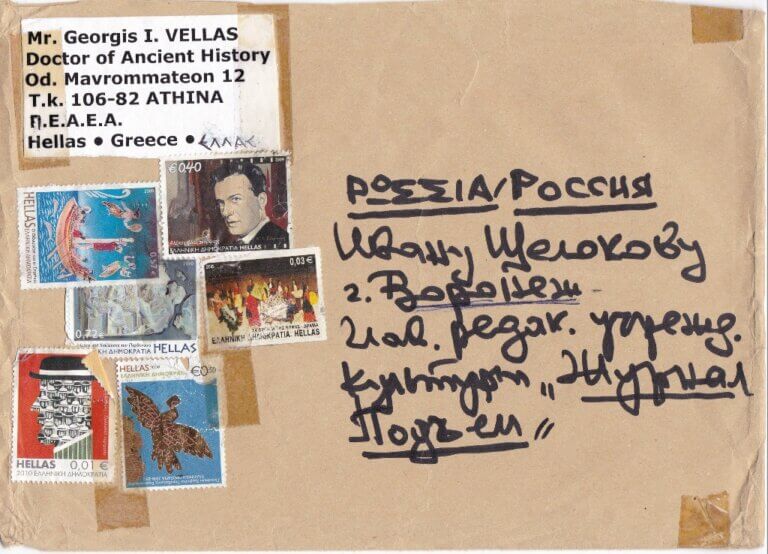 Mr. Georgis I. VELLAS
Doctor of Ancient History
Od. Mavrommateon 12
T.k. 106-82 ATHINA
Π.Ε.Α.Ε.Α.
Hellas • Greece • ΕΛΛΑΣ
€0,40
ΕΛΛΗΝΙΚΗ ΔΗΜΟΚΡΑΤΙΑ HELLAS
HELLAS
0,03€
ΕΛΛΗΝΙΚΗ ΔΗΜΟΚΡΑΤΙΑ HELLAS
0,72€
ΕΛΛΗΝΙΚΗ ΔΗΜΟΚΡΑΤΙΑ HELLAS
HELLAS 0,01€
2010 ΕΛΛΗΝΙΚΗ ΔΗΜΟΚΡΑΤΙΑ
HELLAS
ΕΛΛΗΝΙΚΗ ΔΗΜΟΚΡΑΤΙΑ
ΡΩΣΣΙΑ/РОССИЯ
Ивану Щелокову
г. Воронеж
глав. редак. учрежд.
культуры „Журнал
Подъем"